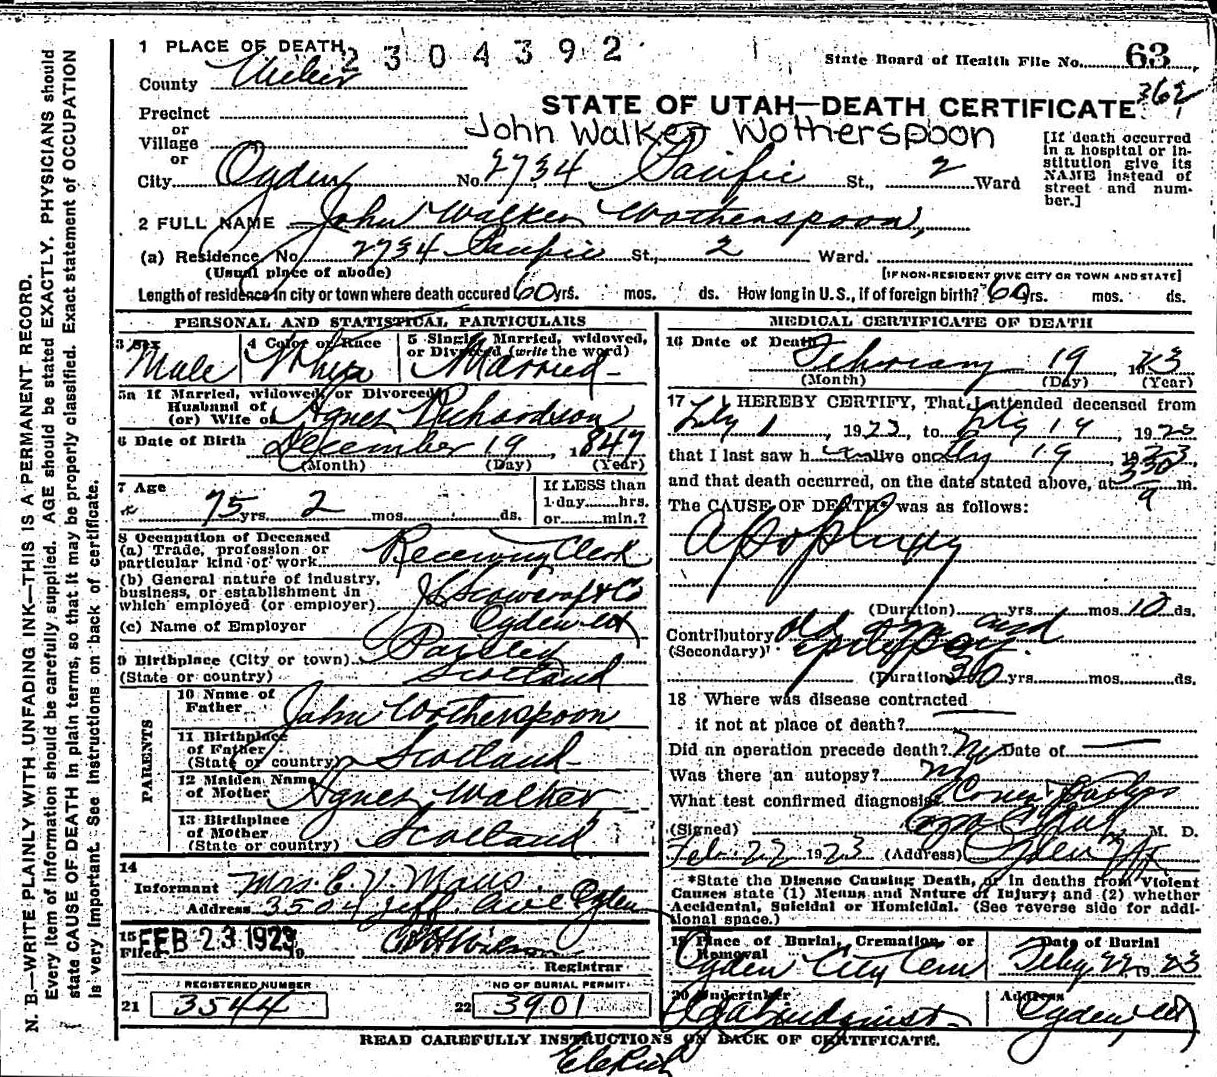 N. B.—WRITE PLAINLY WITH UNFADING INK—THIS IS A PERMANENT RECORD.
Every item of information should be carefully supplied. AGE should be stated EXACTLY. PHYSICIANS should
state CAUSE OF DEATH in plain terms, so that it may be properly classified. Exact statement of OCCUPATION
is very important. See instructions on back of certificate.
1 PLACE OF DEATH 2304392
State Board of Health File No. 63
County Weber
362
STATE OF UTAH—DEATH CERTIFICATE
Precinct
or
Village
or
John Walker Wotherspoon
[If death occurred
in a hospital or in-
stitution give its
NAME instead of
street and num-
ber.]
City Ogden No. 2734 Pacific St., 2 Ward
2 FULL NAME John Walker Wotherspoon,
(a) Residence, No. 2734 Pacific St., 2 Ward.
(Usual place of abode) [IF NON-RESIDENT GIVE CITY OR TOWN AND STATE]
Length of residence in city or town where death occured 60 yrs. mos. ds. How long in U.S., if of foreign birth? 60 yrs. mos. ds.
PERSONAL AND STATISTICAL PARTICULARS
3 Sex 4 Color or Race 5 Single, Married, widowed,
or Divorced (write the word)
Male White Married
5a If Married, widowed or Divorced
Husband of
(or) Wife of Agnes Richardson
6 Date of Birth December 19, 1847
(Month) (Day) (Year)
7 Age If LESS than
1 day hrs.
or min.?
75 yrs. 2 mos. ds.
8 Occupation of Deceased
(a) Trade, profession or
particular kind of work Receiving Clerk
(b) General nature of industry,
business, or establishment in
which employed (or employer) J Scowcroft & Co
(c) Name of Employer Ogden Ut
9 Birthplace (City or town) Paisley
(State or country) Scotland
PARENTS
10 Name of
Father John Wotherspoon
11 Birthplace
of Father
(State or country) Scotland
12 Maiden Name
of Mother Agnes Walker
13 Birthplace
of Mother
(State or country) Scotland
14
Informant Mrs. E. V. Maus.
Address 3504 Jeff. Ave Ogden
15
Filed FEB 23 1923 19
Registrar
REGISTERED NUMBER NO OF BURIAL PERMIT
21 3544 22 3901
MEDICAL CERTIFICATE OF DEATH
16 Date of Death February 19 1923
(Month) (Day) (Year)
17 I HEREBY CERTIFY, That I attended deceased from
Feby 1, 1923, to Feby 19, 1923
that I last saw h im alive on Feby 19, 1923
and that death occurred, on the date stated above, at 330 a m.
The CAUSE OF DEATH* was as follows:
Apoplexy
(Duration) yrs. mos. 10 ds.
Contributory old age and
(Secondary) epilepsy.
(Duration) 30 yrs. mos. ds.
18 Where was disease contracted
if not at place of death?
Did an operation precede death? No Date of
Was there an autopsy? No
What test confirmed diagnosis
(Signed) M. D.
Feb. 22 1923 (Address) Ogden Ut
*State the Disease Causing Death, or in deaths from Violent
Causes state (1) Means and Nature of Injury; and (2) whether
Accidental, Suicidal or Homicidal. (See reverse side for addi-
tional space.)
19 Place of Burial, Cremation or
Removal Date of Burial
Ogden City Cem Feby 22 1923
20 Undertaker Address
Lindquist Ogden Ut
READ CAREFULLY INSTRUCTIONS ON BACK OF CERTIFICATE.